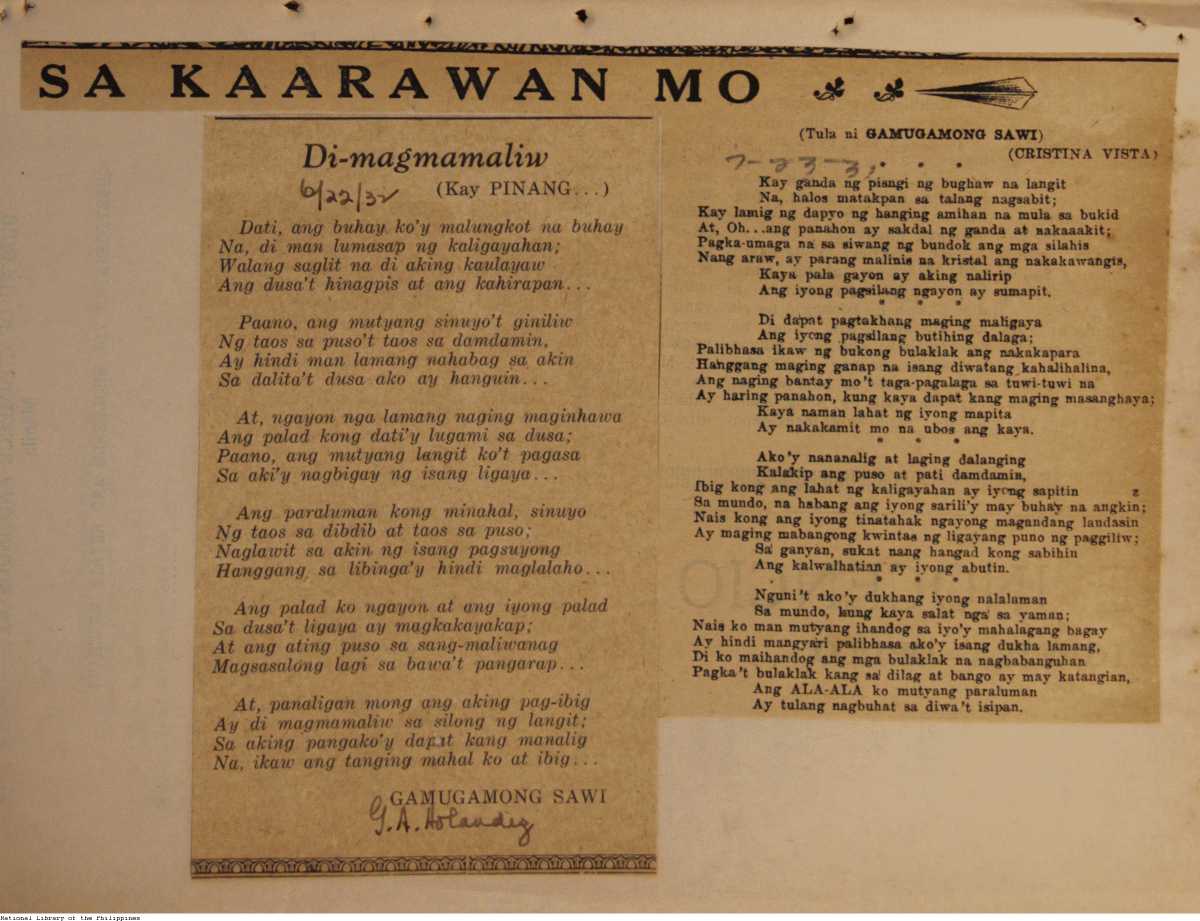 SA KAARAWAN MO
Di-magmamaliw
6/22/32
(Kay PINANG...)
Dati, ang buhay ko'y malungkot na buhay
Na, di man lumasap ng kaligayahan;
Walang saglit na di aking kaulayaw
Ang dusa't hinagpis at ang kahirapan...
Paano, ang mutyang sinuyo't giniliw
Ng taos sa puso't taos sa damdamin,
Ay hindi man lamang nahabag sa akin
Sa dalita't dusa ako ay hanguin...
At, ngayon nga lamang naging maginhawa
Ang palad kong dati'y lugami sa dusa;
Paano, ang mutyang langit ko't pagasa
Sa aki'y nagbigay ng isang ligaya...
Ang paraluman kong minahal, sinuyo
Ng taos sa dibdib at taos sa puso;
Naglawit sa akin ng isang pagsuyong
Hanggang sa libinga'y hindi maglalaho...
Ang palad ko ngayon at ang iyong palad
Sa dusa't ligaya ay magkakayakap;
At ang ating puso sa sang-maliwanag
Magsasalong lagi sa bawa't pangarap...
At, panaligan mong ang aking pag-ibig
Ay di magmamaliw sa silong ng langit;
Sa aking pangako'y dapat kang manalig
Na, ikaw ang tanging mahal ko at ibig...
GAMUGAMONG SAWI
G. A. Holandez
(Tula ni GAMUGAMONG SAWI)
(CRISTINA VISTA)
* * *
Kay ganda ng pisngi ng bughaw na langit
Na, halos matakpan sa talang nagsabit;
Kay lamig ng dapyo ng hanging amihan na mula sa bukid
At, Oh...ang panahon ay sakdal ng ganda at nakaaakit;
Pagka-umaga na sa siwang ng bundok ang mga silahis
Nang araw, ay parang malinis na kristal ang nakakawangis,
Kaya pala gayon ay aking nalirip
Ang iyong pagsilang ngayon ay sumapit.
* * *
Di dapat pagtakhang maging maligaya
Ang iyong pagsilang butihing dalaga;
Palibhasa ikaw ng bukong bulaklak ang nakakapara
Hanggang maging ganap na isang diwatang kahalihalina,
Ang naging bantay mo't taga-pagalaga sa tuwi-tuwi na
Ay haring panahon, kung kaya dapat kang maging masanghaya;
Kaya naman lahat ng iyong mapita
Ay nakakamit mo na ubos ang kaya.
* * *
Ako'y nananalig at laging dalanging
Kalakip ang puso at pati damdamin,
Ibig kong ang lahat ng kaligayahan ay iyong sapitin
Sa mundo, na habang ang iyong sarili'y may buhay na angkin;
Nais kong ang iyong tinatahak ngayong magandang landasin
Ay maging mabangong kwintas ng ligayang puno ng paggiliw;
Sa ganyan, sukat nang hangad kong sabihin
Ang kalwalhatian ay iyong abutin.
* * *
Nguni't ako'y dukhang iyong nalalaman
Sa mundo, kung kaya salat nga sa yaman;
Nais ko man mutyang ihandog sa iyo'y mahalagang bagay
Ay hindi mangyari palibhasa ako'y isang dukha lamang,
Di ko maihandog ang mga bulaklak na nagbabanguhan
Pagka't bulaklak kang sa dilag at bango ay may katangian,
Ang ALA-ALA ko mutyang paraluman
Ay tulang nagbuhat sa diwa't isipan.
National Library of the Philippines